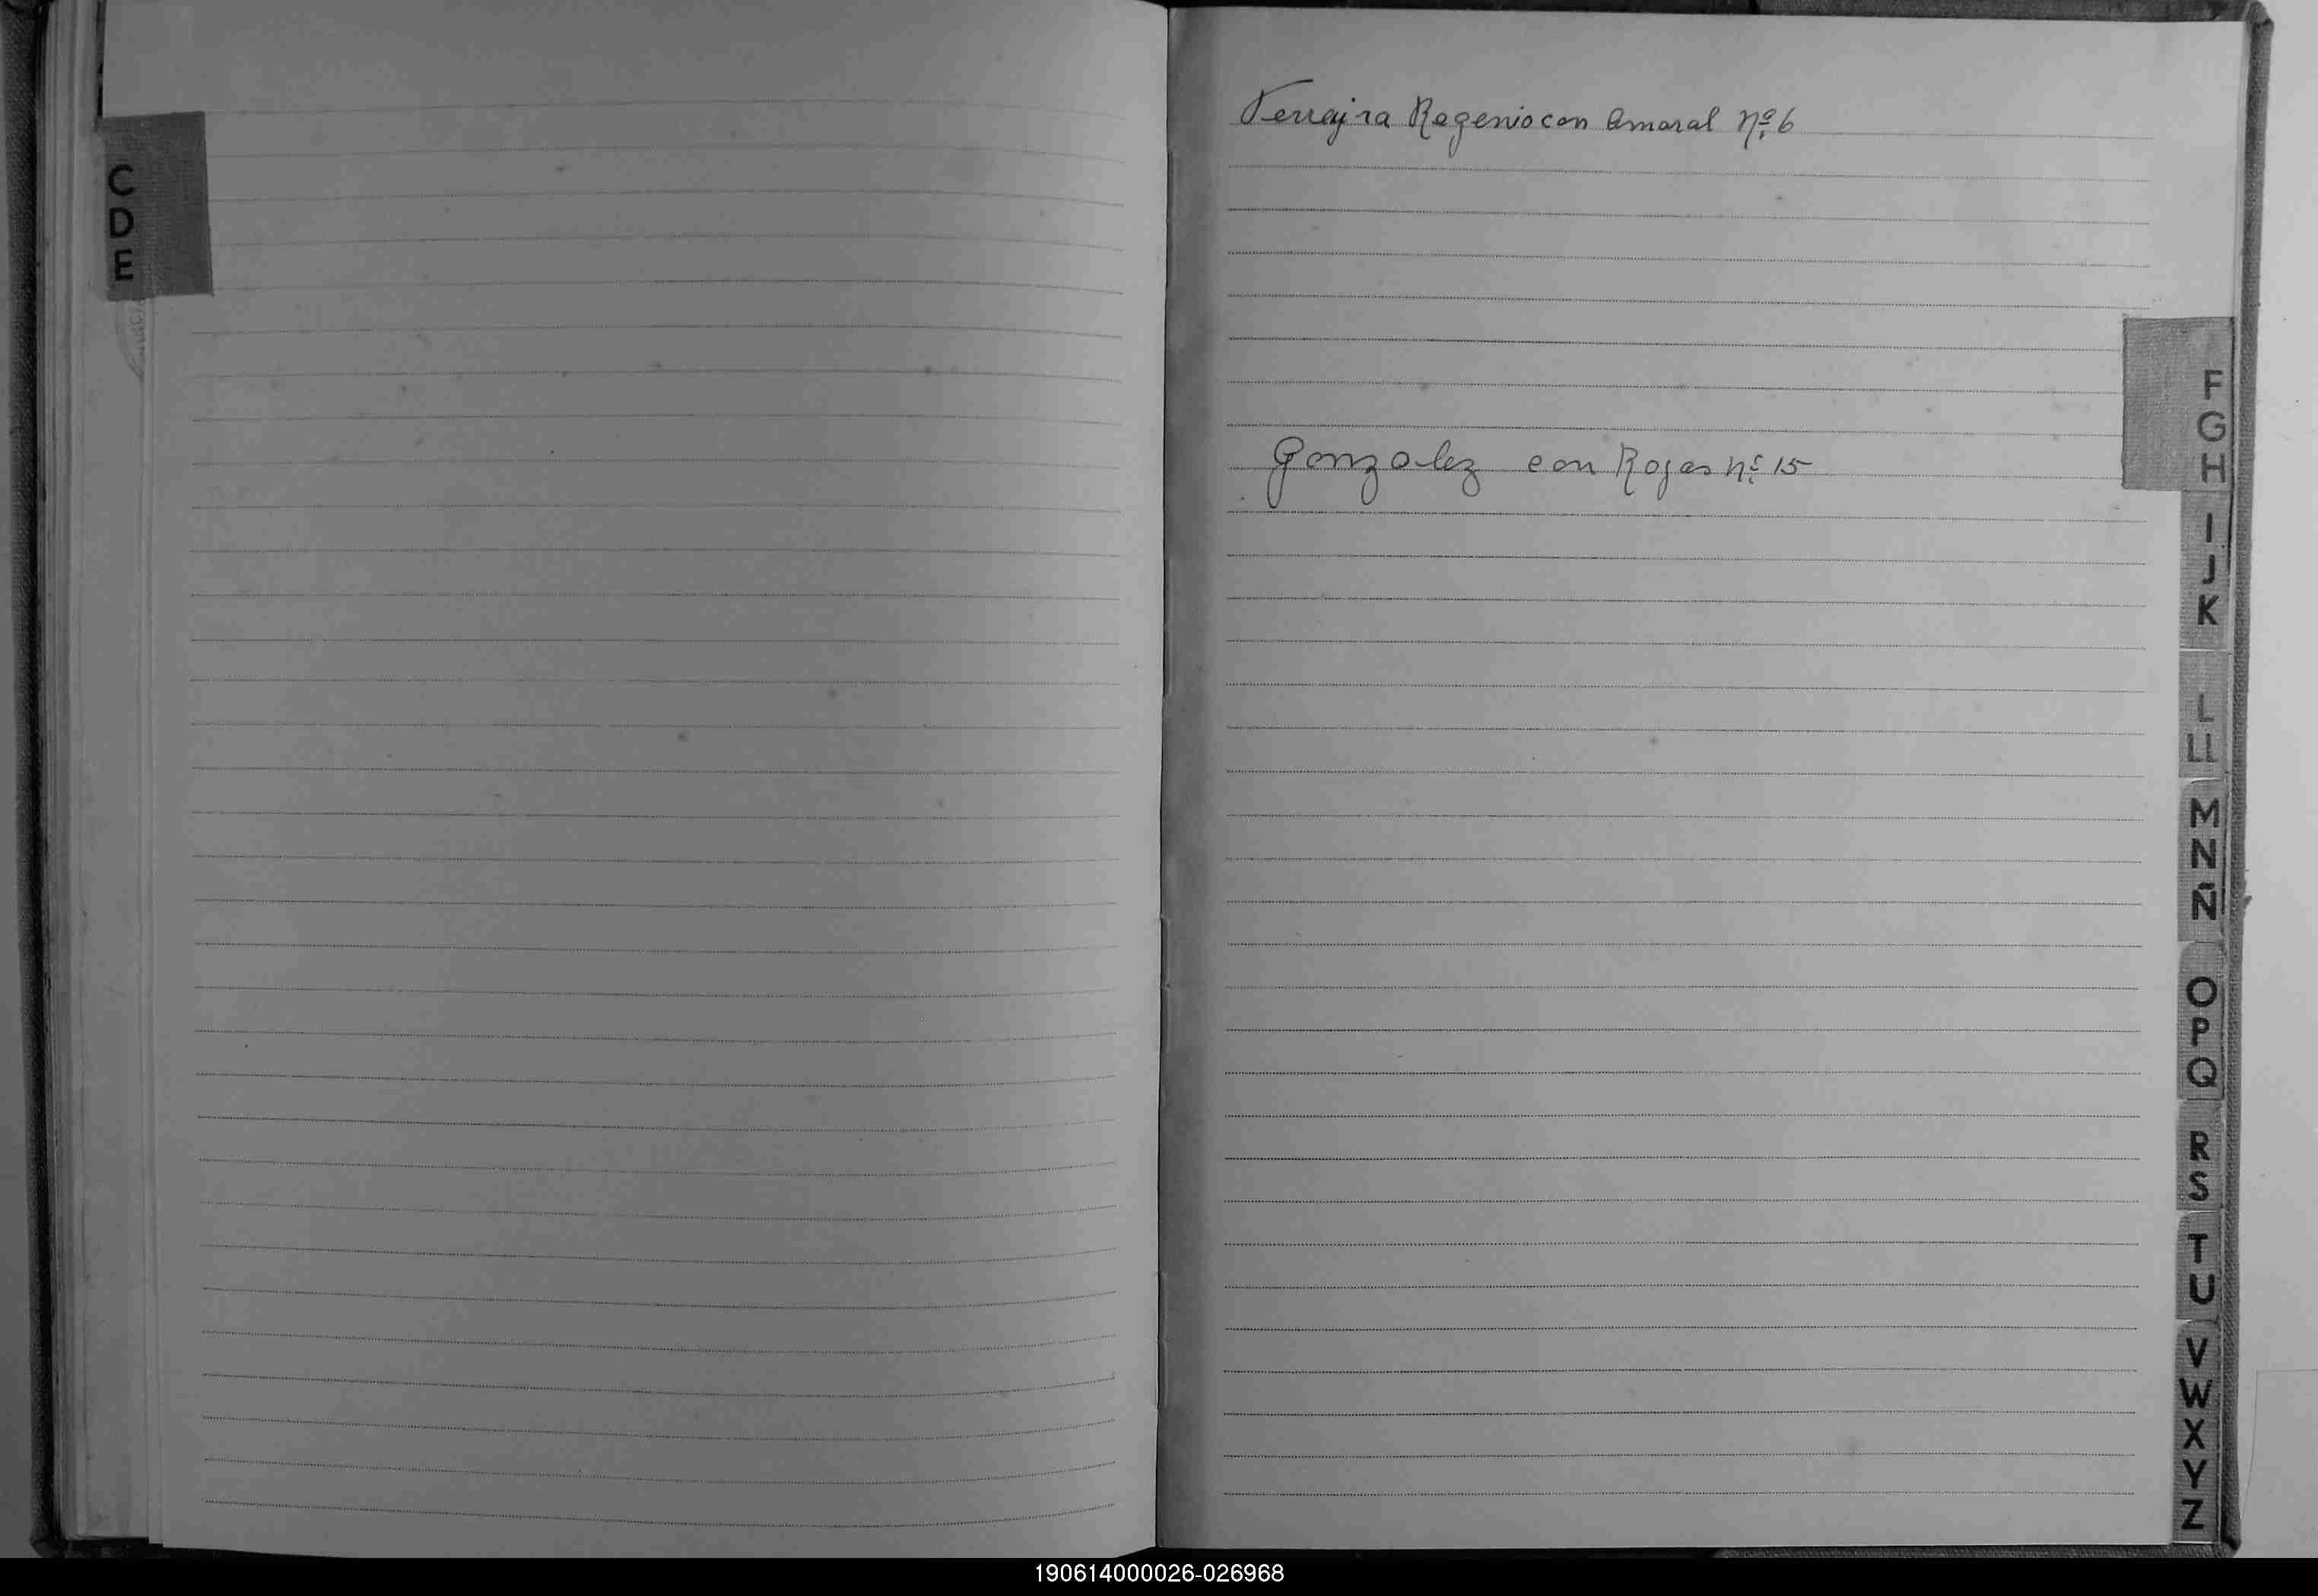 C
D
E
Ferreyra Rogenio con Amaral Nº 6
Gonzalez con Rojas nº 15
F
G
H
I
J
K
L
LL
M
N
Ñ
O
P
Q
R
S
T
U
V
W
X
Y
Z
190614000026-026968